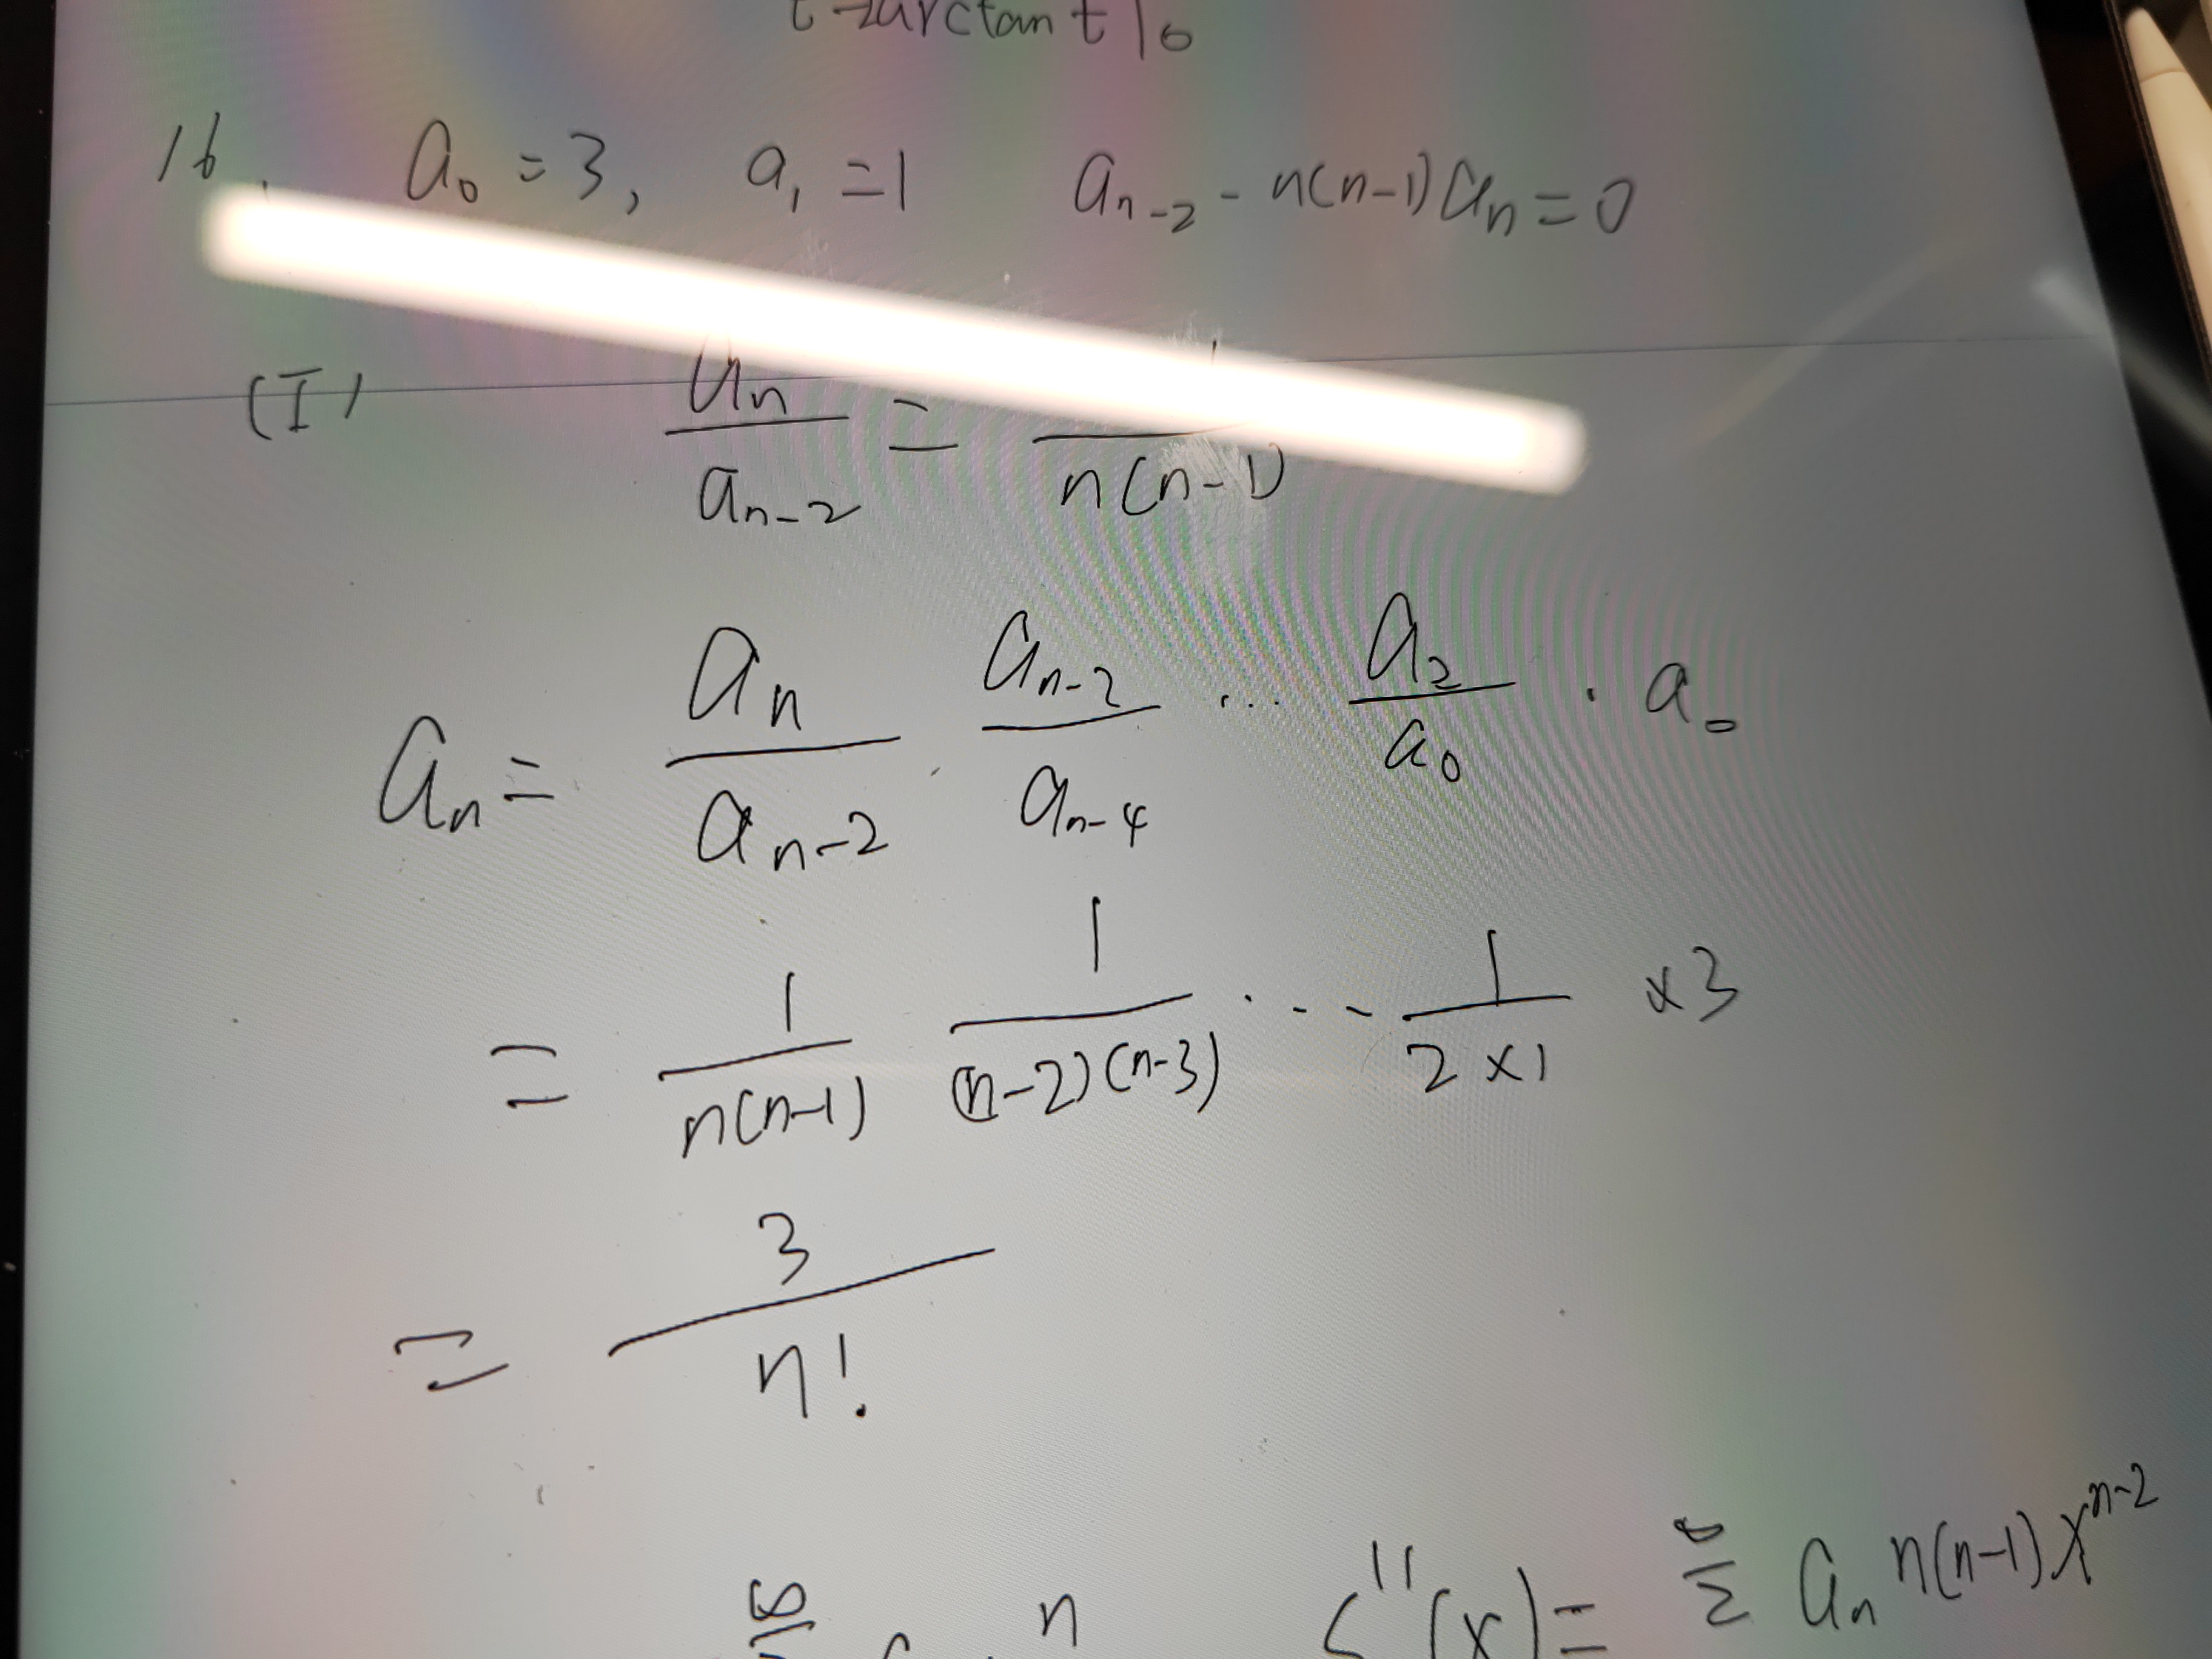 t - 2arctan t |0
16. a₀ = 3, a₁ = 1 aₙ₋₂ - n(n-1)aₙ = 0
(I) aₙ/aₙ₋₂ = 1/n(n-1)
aₙ = aₙ/aₙ₋₂ · aₙ₋₂/aₙ₋₄ ... a₂/a₀ · a₀
= 1/n(n-1) 1/(n-2)(n-3) ... 1/2×1 ×3
= 3/n!
∞ n S''(x) = ∞ Σ aₙ n(n-1)xⁿ⁻²